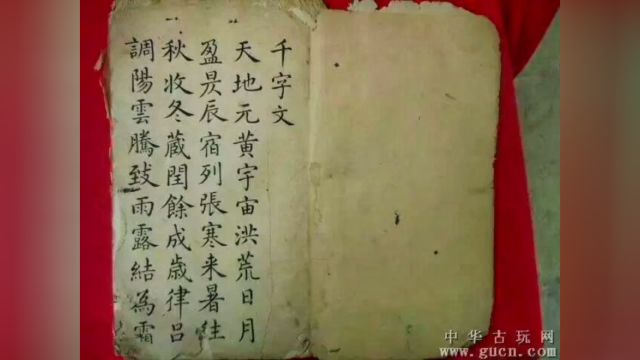 千字文
天地元黄宇宙洪荒日月
盈昃辰宿列張寒来暑往
秋收冬藏閏餘成歲律吕
調陽雲騰致雨露結為霜
中华古玩网
www.gucn.com